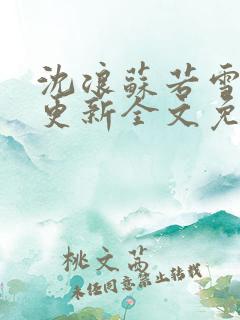 沈浪蘇若雪
更新全文免
桃文蒿
未经同意禁止转载